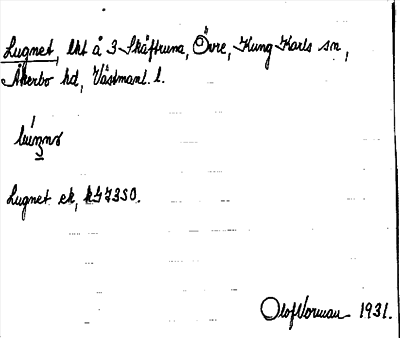 Lugnet, lht å 3 Skäftruna, Övre, Kung Karls sn,
Åkerbo hd, Västmanl. l.
Lugnet ek, kG7350.
Olof Norman 1931.